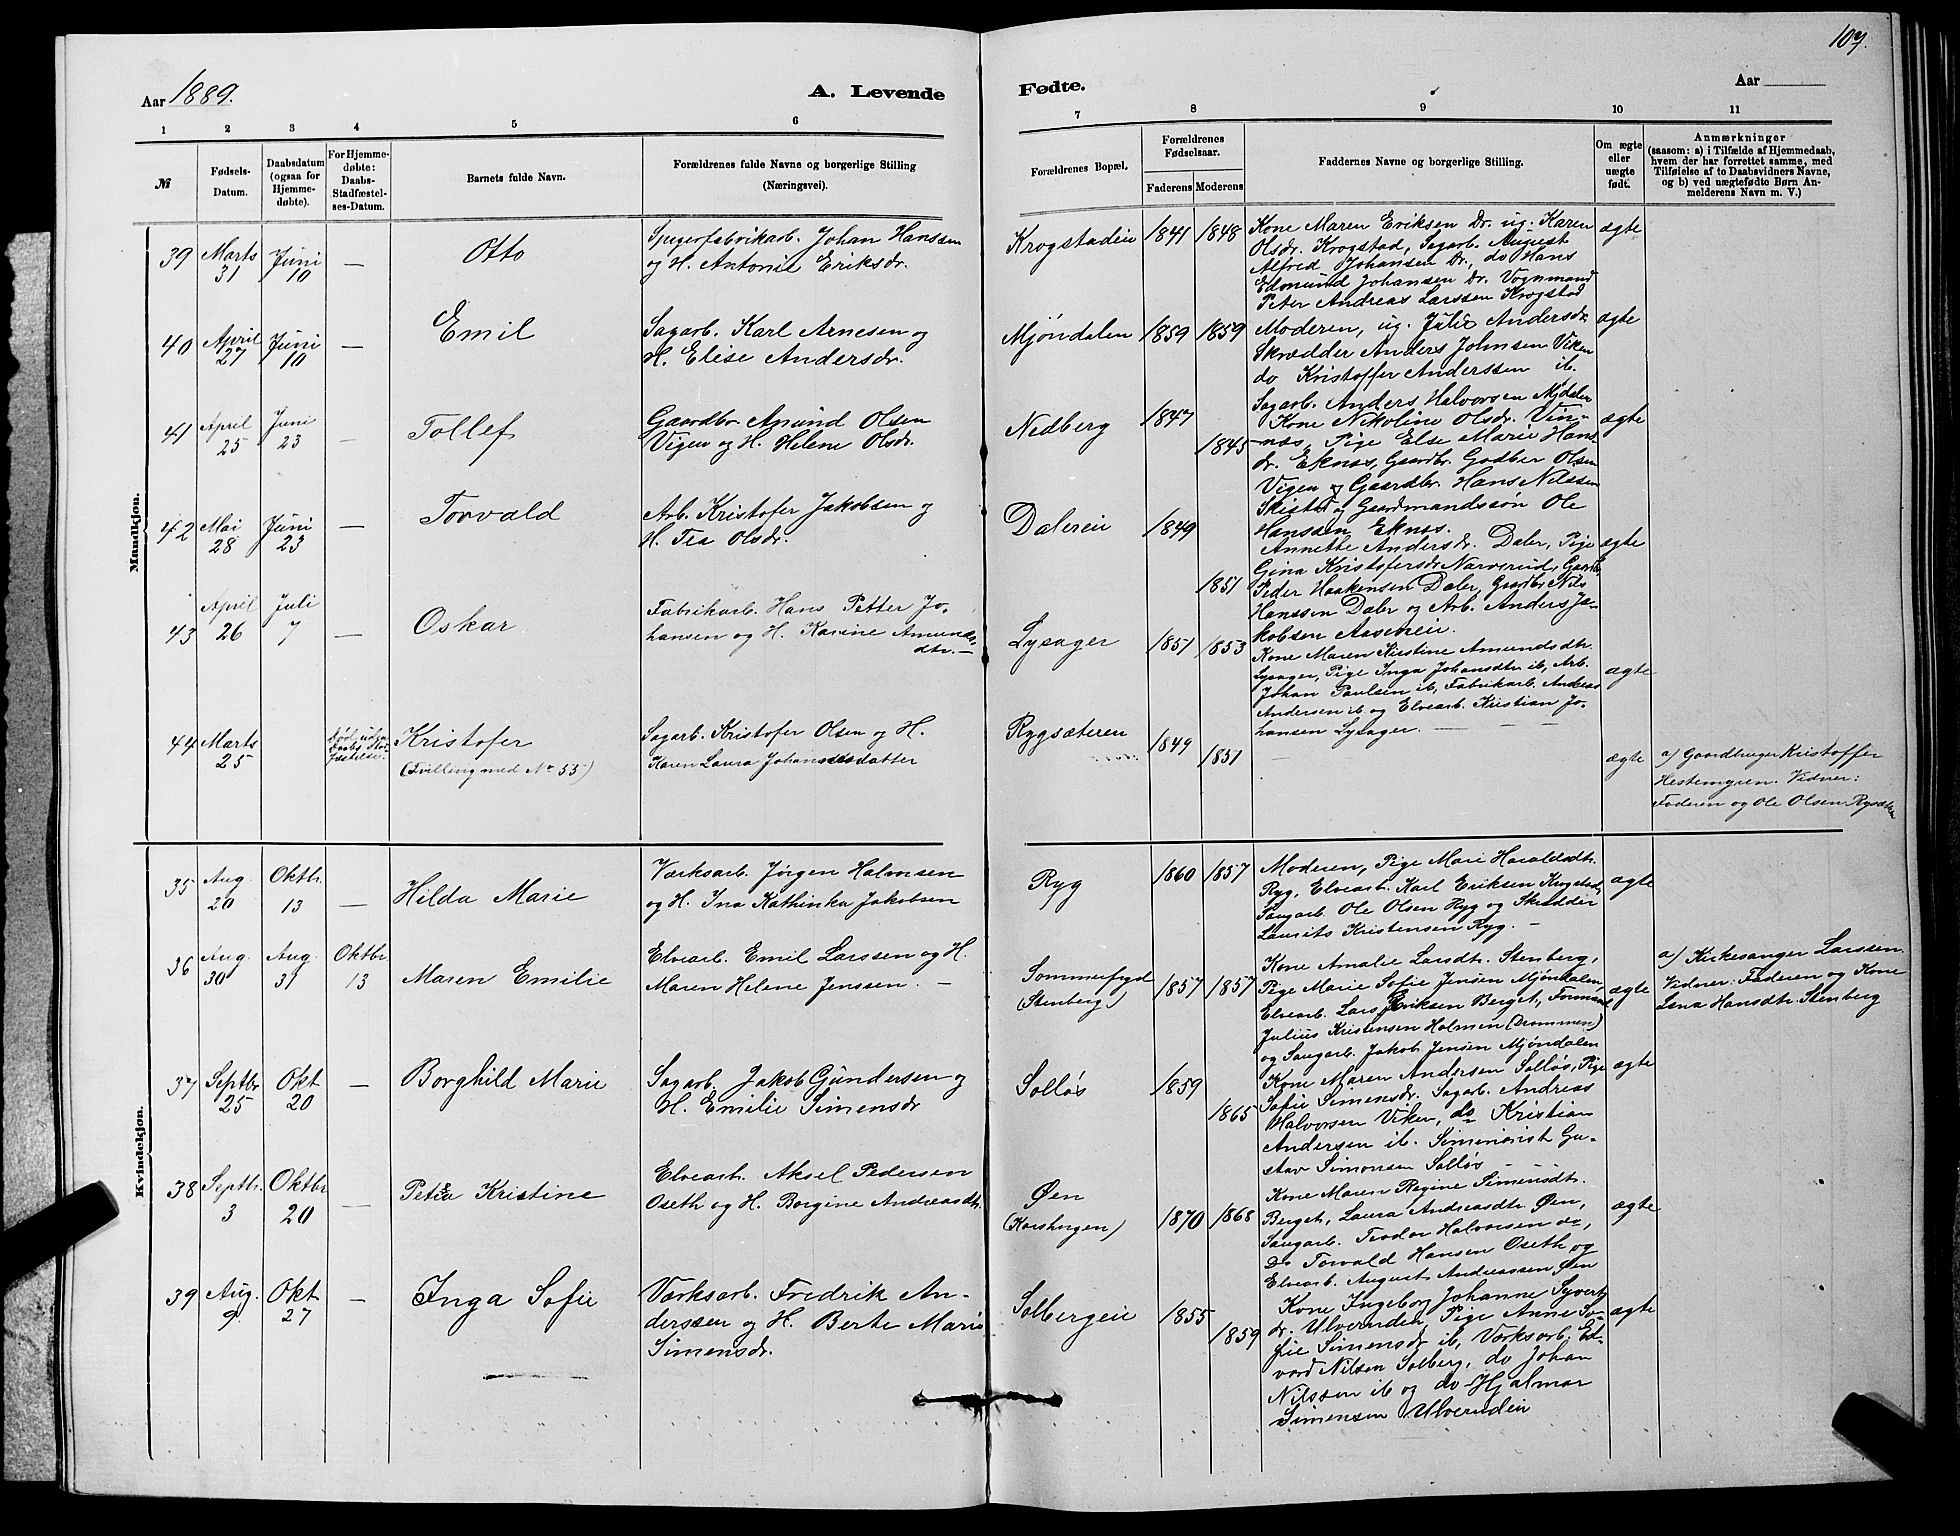 107.
Aar 1889.
A. Levende
Fødte.
Aar
1 2 3 4 5 6 7 8 9 10 11
№
Fødsels-
Datum.
Daabsdatum
(ogsaa for
Hjemme-
døbte).
For Hjemme-
døbte:
Daabs-
Stadfæstel-
ses-Datum.
Barnets fulde Navn.
Forældrenes fulde Navne og borgerlige Stilling
(Næringsvei).
Forældrenes Bopæl.
Forældrenes
Fødselsaar.
Faderens Moderens
Faddernes Navne og borgerlige Stilling.
Om ægte
eller
uægte
født.
Anmærkninger
(saasom: a) i Tilfælde af Hjemmedaab,
hvem der har forrettet samme, med
Tilføielse af to Daabsvidners Navne,
og b) ved uægtefødte Børn An-
melderens Navn m. V.)
Mandkjøn.
39 Marts 31 Juni 10 — Otto
Spigerfabrikarb. Johan Hanssen
og H. Antonie Eriksdr.
Krogstadeie 1841 1848
Kone Maren Eriksen Dr. ug. Karen
Olsdr. Krogstad, Sagarb. August
Alfred Johansen Dr., do Hans
Edmund Johansen Dr. Vognmand
Peter Andreas Larssen Krogstad
ægte
40 April 27 Juni 10 — Emil
Sagarb. Karl Arnesen og
H. Elise Andersdr.
Mjøndalen 1859 1859
Moderen, ug. Julie Andersdr.
Skrædder Anders Johnsen Viken
do Kristoffer Anderssen ib.
Sagarb. Anders Halvorsen Mjdalen
ægte
41 April 25 Juni 23 — Tollef
Gaardbr. Amund Olsen
Vigen og H. Helene Olsdr.
Nedberg 1847 1845
Kone Nikoline Olsdr. Vin-
næs, Pige Else Marie Hans
dr. Eknæs, Gaardbr. Godber Olsen
Vigen og Gaardbr. Hans Nilssen
Skistad og Gaardmandssøn Ole
Hanssen Eknæs.
ægte
42 Mai 28 Juni 23 — Torvald
Arb. Kristofer Jakobsen og
H. Tea Olsdr.
Dalereie 1849 1851
Annette Andersdr. Daler, Pige
Gina Kristofersdr. Narverud, Gaardbr.
Peder Haakensen Daler, Gaardbr. Nils
Hanssen Daler og Arb. Anders Ja-
kobsen Aasereie.
ægte
43 April 26 Juli 7 — Oskar
Fabrikarb. Hans Petter Jo-
hansen og H. Karine Amunds
dtr. —
Lysager 1851 1853
Kone Maren Kirstine Amundsdtr.
Lysager, Pige Inga Johansdtr. ib, Arb.
Johan Paulsen ib, Fabrikarb. Andreas
Andersen ib og Elvearb. Kristian Jo-
hansen Lysager. —
ægte
44 Marts 25
død uden
Daabs Stad-
fæstelse.
Kristofer
(Tvilling med No 55)
Sagarb. Kristofer Olsen og H.
Karen Laura Johannesdatter
Rygsæteren 1849 1851 — ægte
a) Gaardbruger Kristoffer
Hestemyren. Vidner:
Faderen og Ole Olsen Rygsæter
Kvindekjøn.
35 Aug. 20 Oktbr. 13 — Hilda Marie
Værksarb. Jørgen Halvorsen
og H. Ina Kathinka Jakobsen
Ryg 1860 1857
Moderen, Pige Mari Haraldsdtr.
Ryg, Elvearb. Karl Eriksen Krogstad,
Saugarb. Ole Olsen Ryg og Skrædder
Laurits Kristensen Ryg. —
ægte
36 Aug. 30 Aug. 31 Oktbr 13 Maren Emilie
Elvearb. Emil Larssen og H.
Maren Helene Jenssen. —
Sommerfryd
(Stenberg) 1857 1857
Kone Amalie Larsdtr. Stenberg,
Pige Marie Sofie Jensen Mjøndalen,
Elvearb. Lars Eriksen Berget, Formand
Julius Kristensen Holmen (Drammen)
og Saugarb. Jakob Jensen Mjøndalen
ægte
a) Kirkesanger Larssen.
Vidner: Faderen og Kone
Lina Hansdtr. Stenberg
37 Septbr 25 Okt 20 — Borghild Marie
Sagarb. Jakob Gundersen og
H. Emilie Simensdr
Solløs 1859 1865
Kone Maren Andersen Solløs, Pige
Sofie Simensdr. Sagarb. Andreas
Halvorsen Viken, do Kristian
Andersen ib. Seminarist Gu-
stav Simonsen Solløs
ægte
38 Septbr. 3 Oktbr 20 — Petra Kristine
Elvearb. Aksel Pedersen
Oseth og H. Borgine Andreasdtr.
Øen
(Korshagen) 1870 1868
Kone Maren Regine Simensdtr.
Berget, Laura Andreasdtr. Øen,
Saugarb. Teodor Halvorsen do,
Do Torvald Hansen Oseth og
Elvearb. August Andreassen Øen
ægte
39 Aug. 9. Okt. 27 — Inga Sofie
Værksarb. Fredrik An-
derssen og H. Berte Marie
Simensdr.
Solbergeie 1855 1859
Kone Ingeborg Johanne Syverts
dr. Ulverudeie, Pige Anne So-
fie Simensdr ib, Værksarb. Ed-
vard Nilsen Solberg, do Johan
Nilssen ib og do Hjalmar
Simensen Ulverudeie
ægte